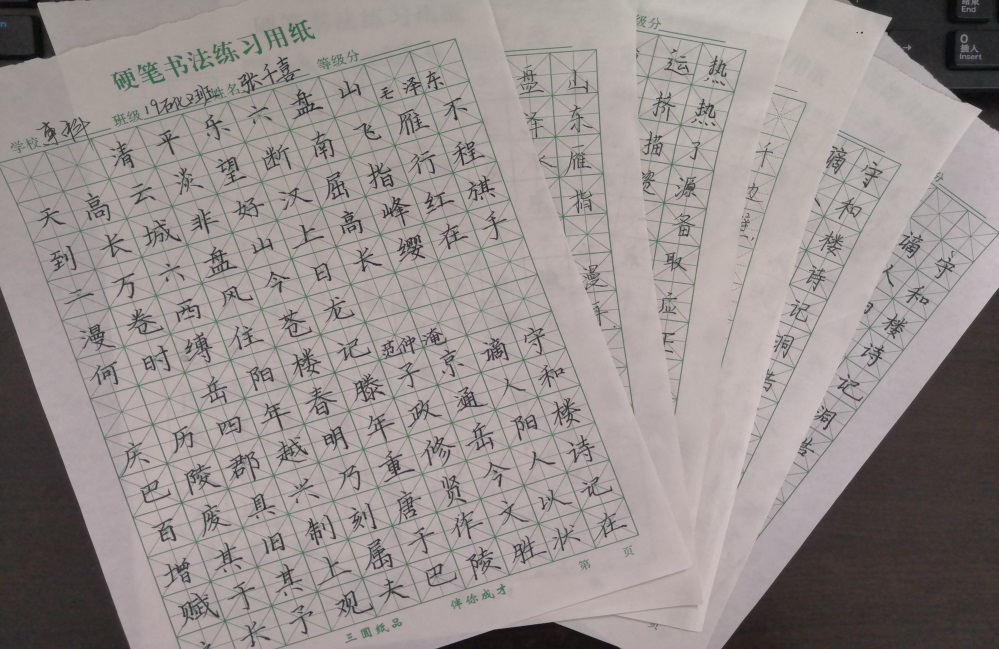 硬笔书法练习用纸
学校 本科 班级 19石化2班 姓名 张千喜 等级分
清平乐六盘山 毛泽东
天高云淡望断南飞雁不
到长城非好汉屈指行程
二万六盘山上高峰红旗
漫卷西风今日长缨在手
何时缚住苍龙
岳阳楼记 范仲淹
庆历四年春滕子京谪守
巴陵郡越明年政通人和
百废具兴乃重修岳阳楼
增其旧制刻唐贤今人诗
赋于其上属于作文以记
予观夫巴陵胜状在
三圆纸品 伴你成才 第 页
盘山
泽东
雁
指
漫
级分
运热
挤热
描了
源
备
取
应
千
边
谪守
和
楼
诗
记
洞
分
谪守
人和
楼
诗
记
洞
页
End
0
插入
Insert